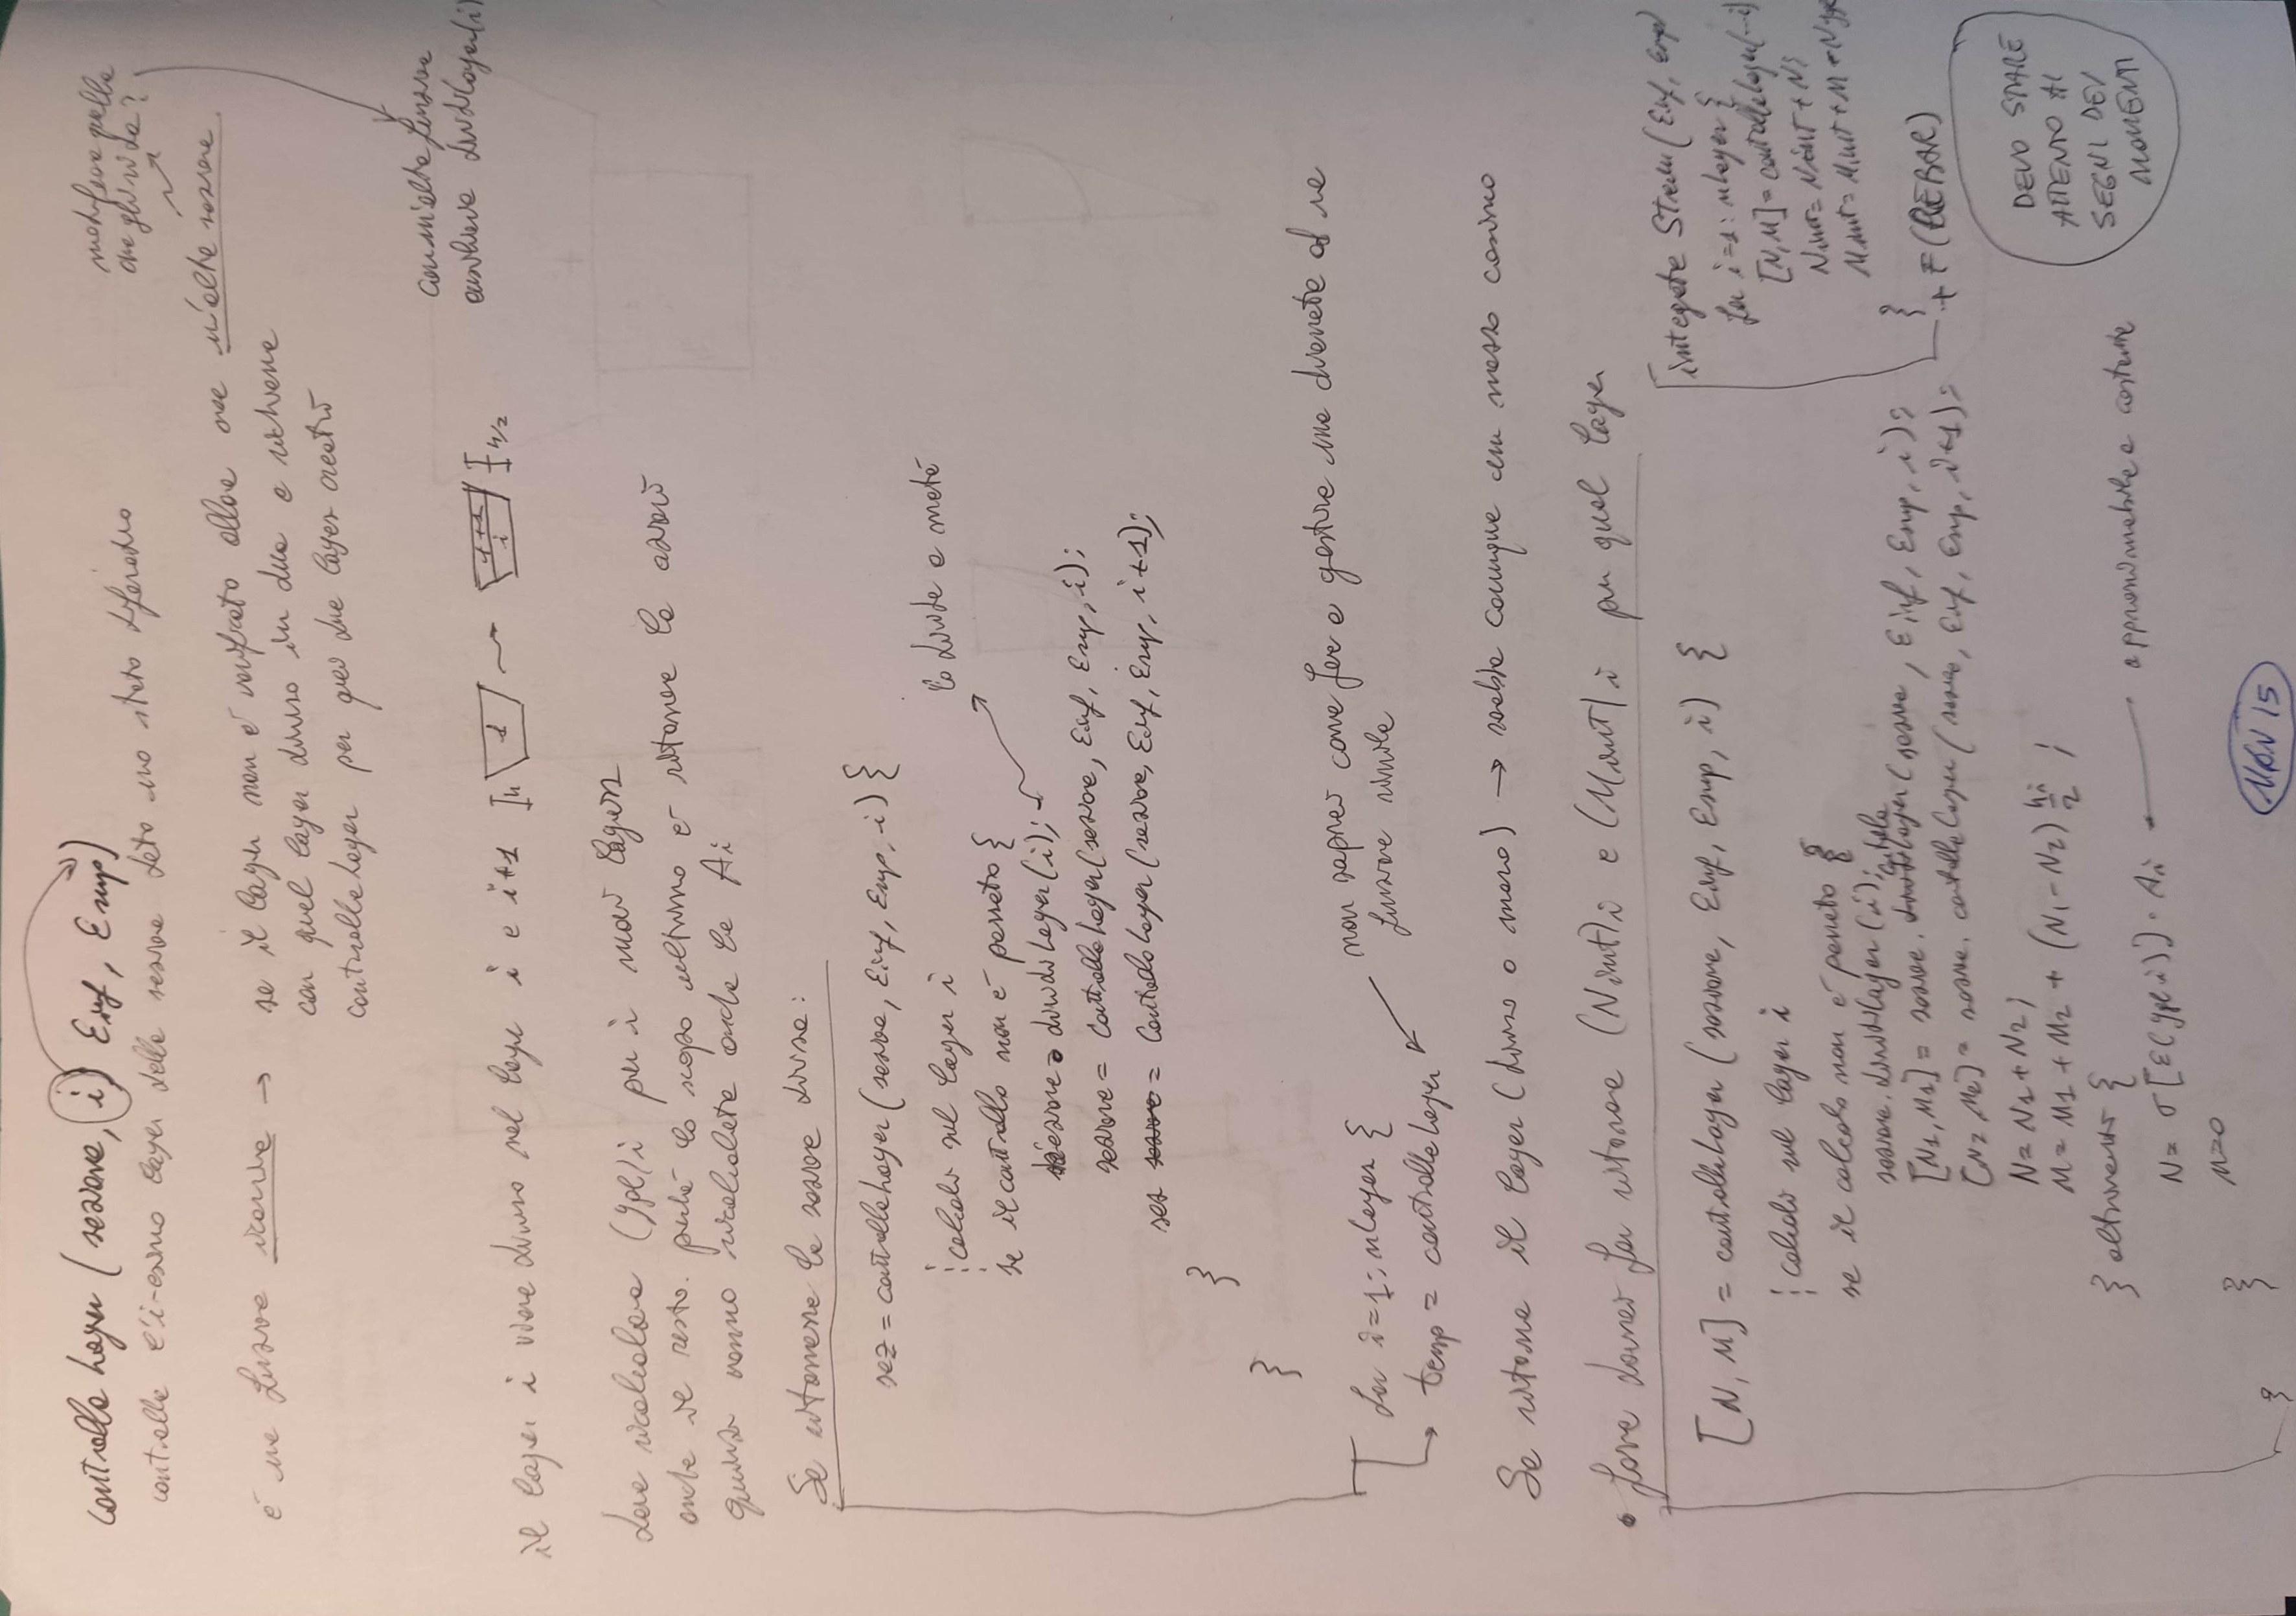 controllaLayer (sezione, i) εinf, εsup)
controlla l'i-esimo layer della sezione dato uno stato deformativo
modificare quella
che gli si dà?
è una funzione ricorsiva → se il layer non è verificato allora crea un'altra sezione
con quel layer diviso in due e richiama
controllaLayer per quei due layer creati
con un'altra funzione
ausiliaria dividiLayer(i)
il layer i viene diviso nel layer i e i+1 h 1 → i+1 i h/2
deve ricalcolare (ygl)i per i nuovi layers
anche il resto. perché lo scopo ultimo è ritornare le azioni
quindi vanno ricalcolate anche le Ai
Se ritornasse la sezione divisa:
sez = controllaLayer (sezione, εinf, εsup, i) {
calcoli sul layer i
lo divide a metà
se il controllo non è passato {
sezione = dividiLayer(i);
sezione = controllaLayer(sezione, εinf, εsup, i);
sez = controllaLayer(sezione, εinf, εsup, i+1);
}
}
non saprei come fare a gestire una chiamata ad una
funzione simile
for i=1:nlayer {
temp = controllaLayer
Se ritorna il layer (diviso o meno) → sarebbe comunque un mezzo casino
• forse dovrei far ritornare (Nint)i e (Mint)i per quel layer
[N, M] = controllaLayer (sezione, εinf, εsup, i) {
calcoli sul layer i
se il calcolo non è passato {
sezione.dividiLayer(i);
controlla
[N1, M1] = sezione.Layer(sezione, εinf, εsup, i);
[N2 M2] = sezione.controllaLayer(sezione, εinf, εsup, i+1);
N = N1 + N2;
M = M1 + M2 + (N1 - N2) hi/2 ;
} altrimenti {
N = σ[ε(ygl i)] · Ai ← approssimabile a costante
M=0
}
}
integrate (εinf, εsup)
for i=1:nlayer {
[N,M] = controllaLayer(...i)
Nint = Nint + N;
Mint = Mint + M + N
}
+ F(REBAR)
DEVO STARE
ATTENTO AI
SEGNI DEI
MOMENTI
MON 15